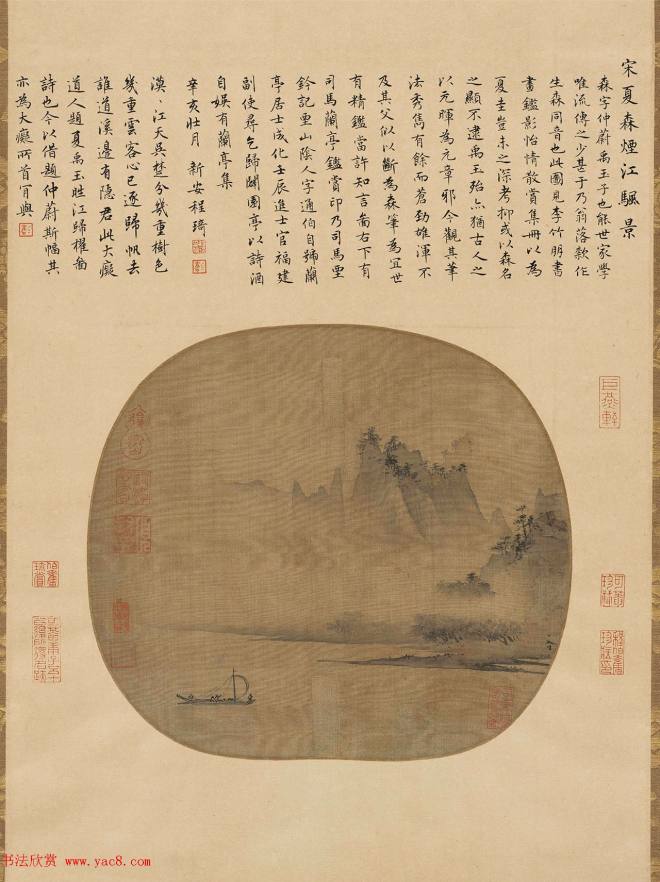 宋夏森煙江颿景
森字仲蔚禹玉子也能世家學
唯流傳之少甚于乃翁落欵作
生森同音也此圖見李竹朋書
畫鑑影怡情散賞集冊以為
夏圭豈未之深考抑或以森名
之顯不逮禹玉殆亦猶古人之
以元暉為元章邪今觀其筆
法秀雋有餘而蒼勁雄渾不
及其父似以斷為森筆為宜世
有精鑑當許知言啚右下有
司馬蘭亭鑑賞印乃司馬垔
鈐記垔山陰人字通伯自號蘭
亭居士成化壬辰進士官福建
副使尋乞歸闢園亭以詩酒
自娛有蘭亭集
辛亥壯月 新安程琦
漠〻江天吳楚分幾重樹色
幾重雲客心已逐歸帆去
誰道溪邊有隱君此大癡
道人題夏禹玉胜江歸櫂啚
詩也今以借題仲蔚斯幅其
亦為大癡所首肎與
书法欣赏 www.yac8.com